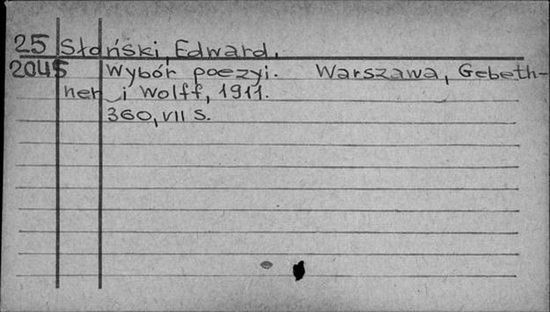 25 Słoński, Edward.
2045 Wybór poezyi. Warszawa, Gebeth-
ner i Wolff, 1911.
360, VII s.